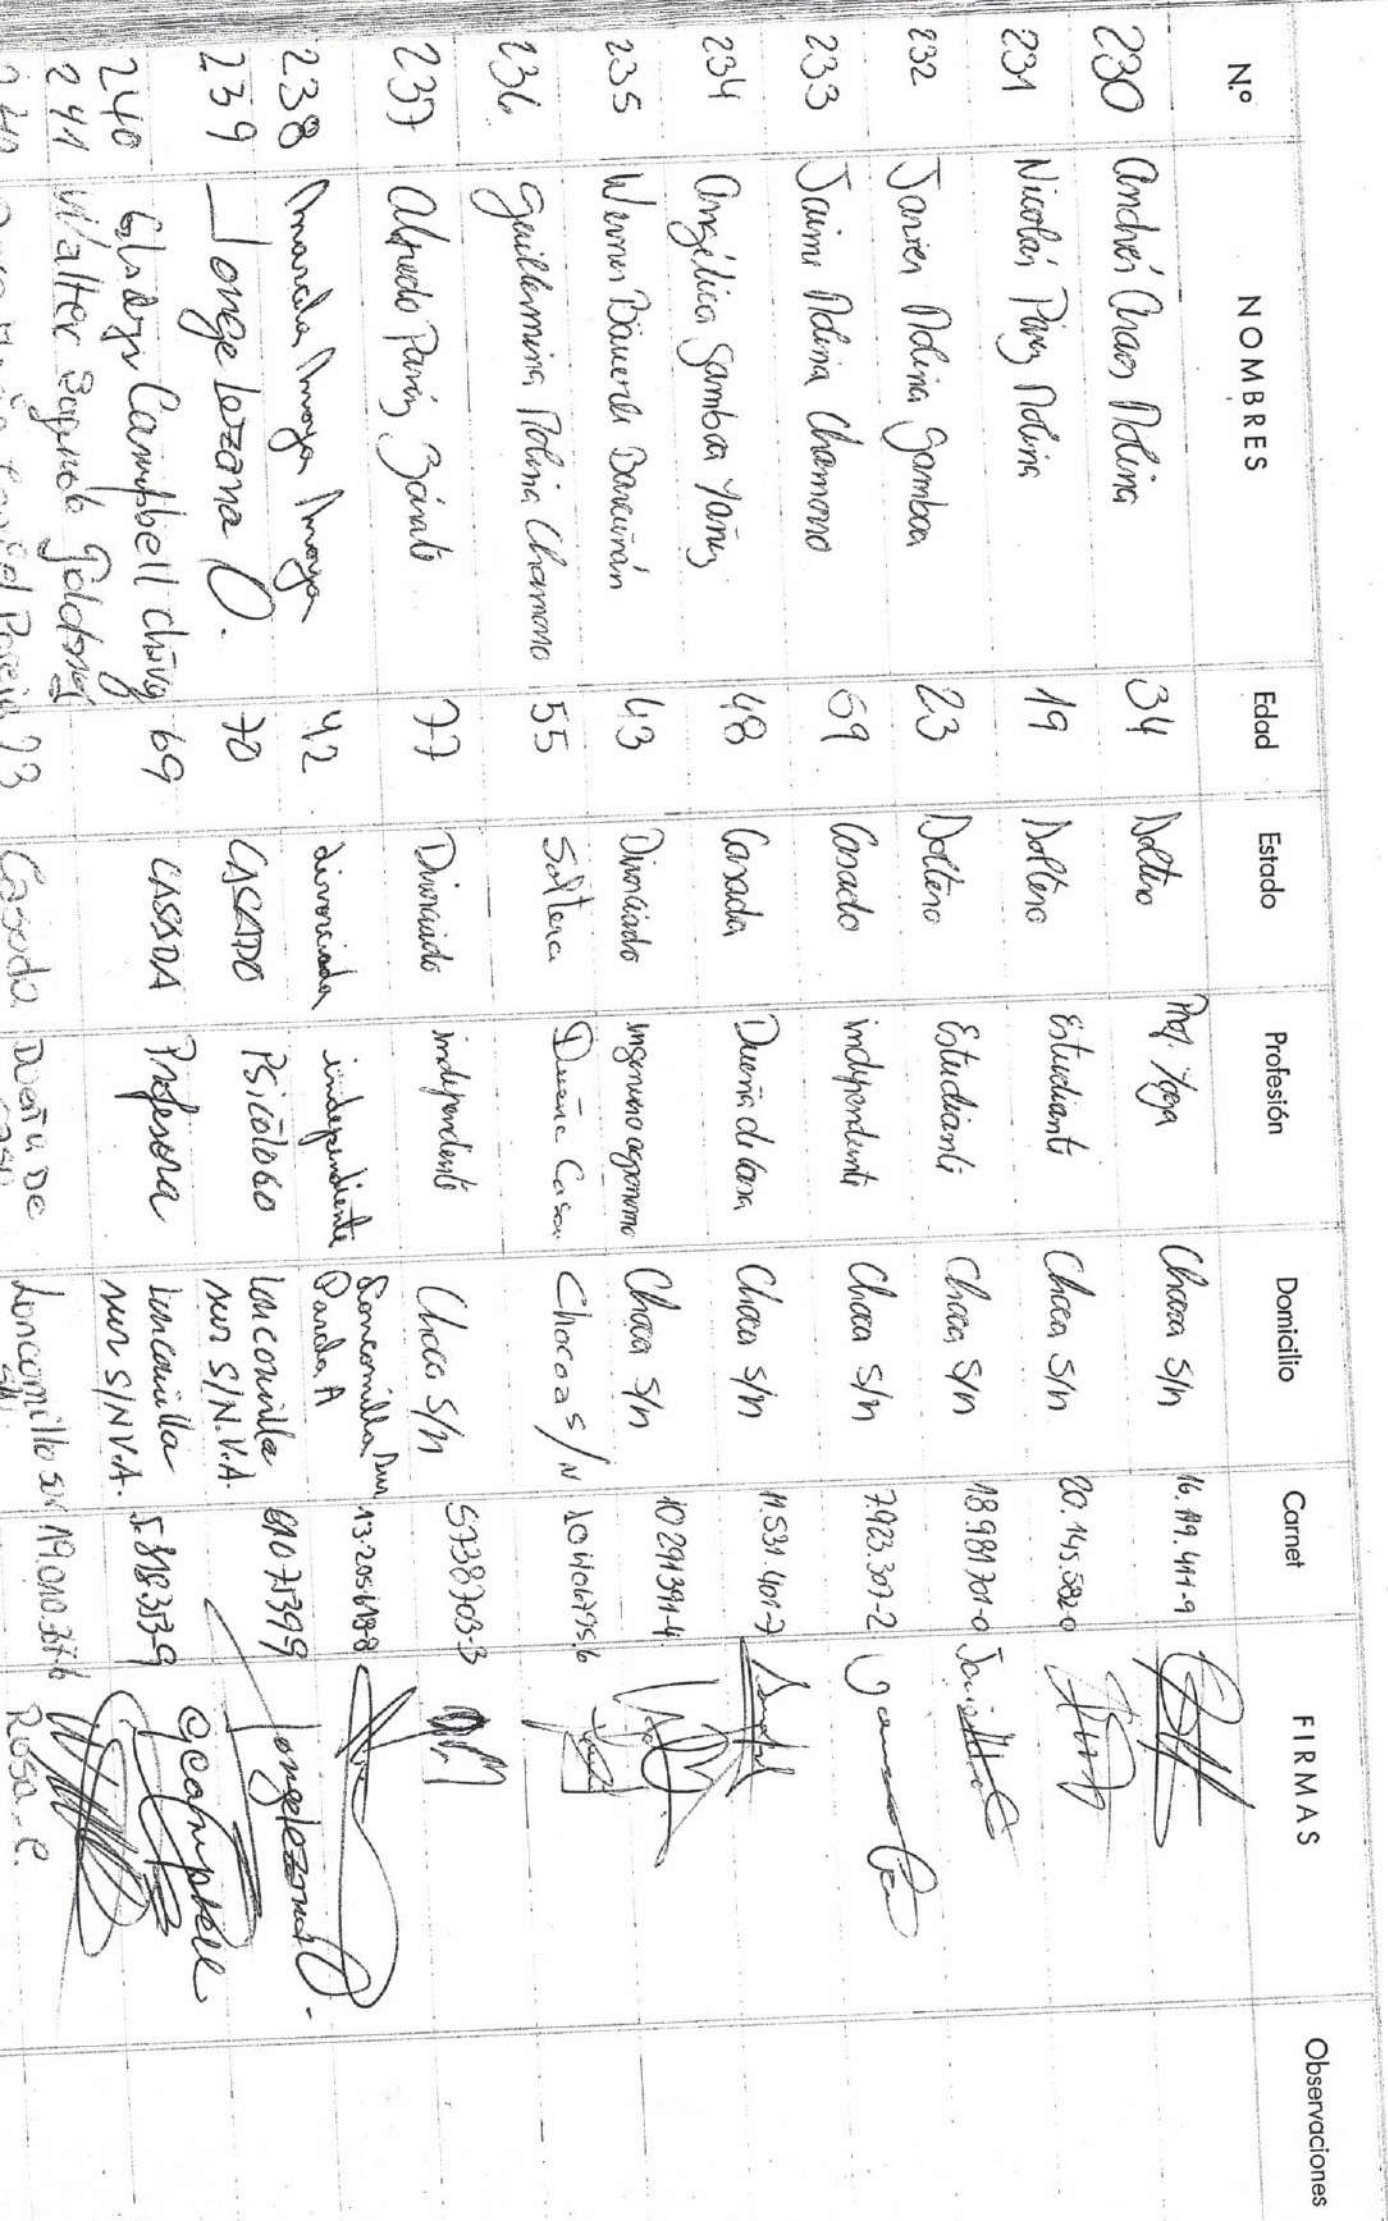 N.º NOMBRES Edad Estado Profesión Domicilio Carnet FIRMAS Observaciones
230 Andrés Araos Molina 34 Soltero Prof. Yoga Choca S/n 16.119.411-9
231 Nicolás Pávez Molina 19 Soltero Estudiante Choca S/n 20.145.582-0
232 Javier Molina Gamboa 23 Soltero Estudiante Choca S/n 18.981701-0
233 Jaime Molina Chamorro 69 Casado independiente Choca S/n 7.923.307-2
234 Angélica Gamboa Yañez 48 Casada Dueña de Casa Choca S/n 11.531.401-7
235 Werner Bäuerle 43 Divorciado ingeniero agronomo Choca S/n 10291391-4
236 Guillermina Molina Chamorro 55 Soltera Dueña Casa Choca S/N
237 Alfredo Zárate 77 Divorciado independiente Choca S/n 5738703-3
238 Amaya Amaya 42 divorciada independiente Loncomilla Sur Parada A 13.205.698-8
239 Jorge Lozana O. 70 CASADO PSicólogo Loncomilla sur S/N.V.A. Jorge Lozana O.
240 Gladys Campbell Chávez 69 CASADA Profesora Loncomilla sur S/N V.A. 5.818.353-9 GCampbell
241 Walter
23 Casada Dueña De Casa Loncomilla sur S/N 19.010.376 Rosa. C.